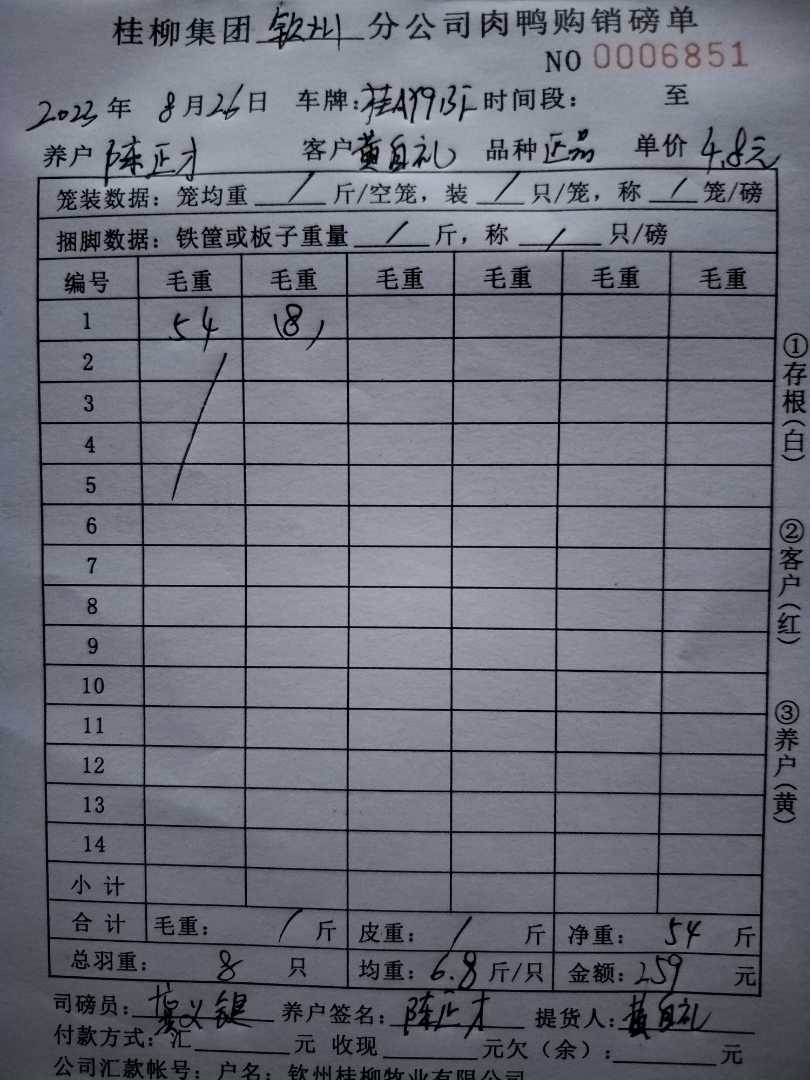 桂柳集团 钦州 分公司肉鸭购销磅单
NO 0006851
2023年 8月26日 车牌: 时间段: 至
养户 陈正才 客户 黄自礼 品种 正品 单价 4.8元
笼装数据: 笼均重 / 斤/空笼, 装 / 只/笼, 称 / 笼/磅
捆脚数据: 铁筐或板子重量 / 斤, 称 / 只/磅
编号 毛重 毛重 毛重 毛重 毛重 毛重
1 54 (8)
2
3
4
5
6
7
8
9
10
11
12
13
14
小计
合计 毛重: / 斤 皮重: / 斤 净重: 54 斤
总羽重: 8 只 均重: 6.8 斤/只 金额: 259 元
司磅员: 养户签名: 陈正才 提货人: 黄自礼
付款方式: 汇 元 收现 元欠(余): 元
公司汇款帐号: 户名: 钦州桂柳牧业有限公司
①存根(白)
②客户(红)
③养户(黄)